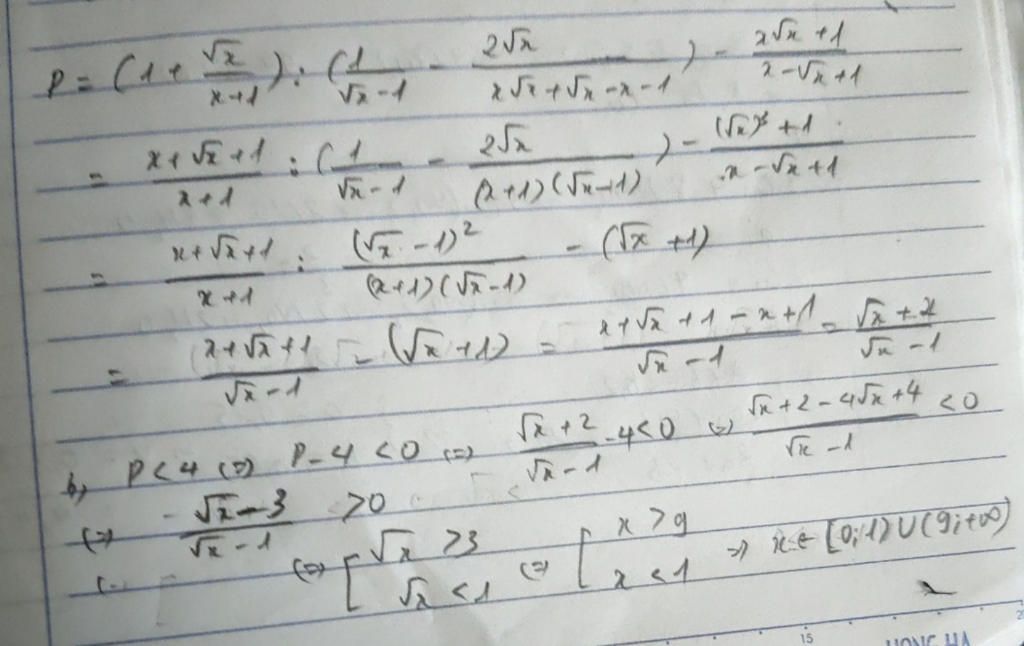 P = (1 + √x/(x+1)) : (1/(√x-1) - 2√x/(x√x+√x-x-1)) - (x√x+1)/(x-√x+1)
= (x+√x+1)/(x+1) : (1/(√x-1) - 2√x/((x+1)(√x-1))) - ((√x)³+1)/(x-√x+1)
= (x+√x+1)/(x+1) : (√x-1)²/((x+1)(√x-1)) - (√x+1)
= (x+√x+1)/(√x-1) - (√x+1) = (x+√x+1-x+1)/(√x-1) = (√x+2)/(√x-1)
b, P<4 (=) P-4<0 (=) (√x+2)/(√x-1) -4<0 (=) (√x+2-4√x+4)/(√x-1) <0
(=) (√x-3)/(√x-1) >0
(=) [ √x >3 (=) [ x >9 =) x ∈ [0;1)∪(9;+∞)
√x <1 x <1
15
HONG HA